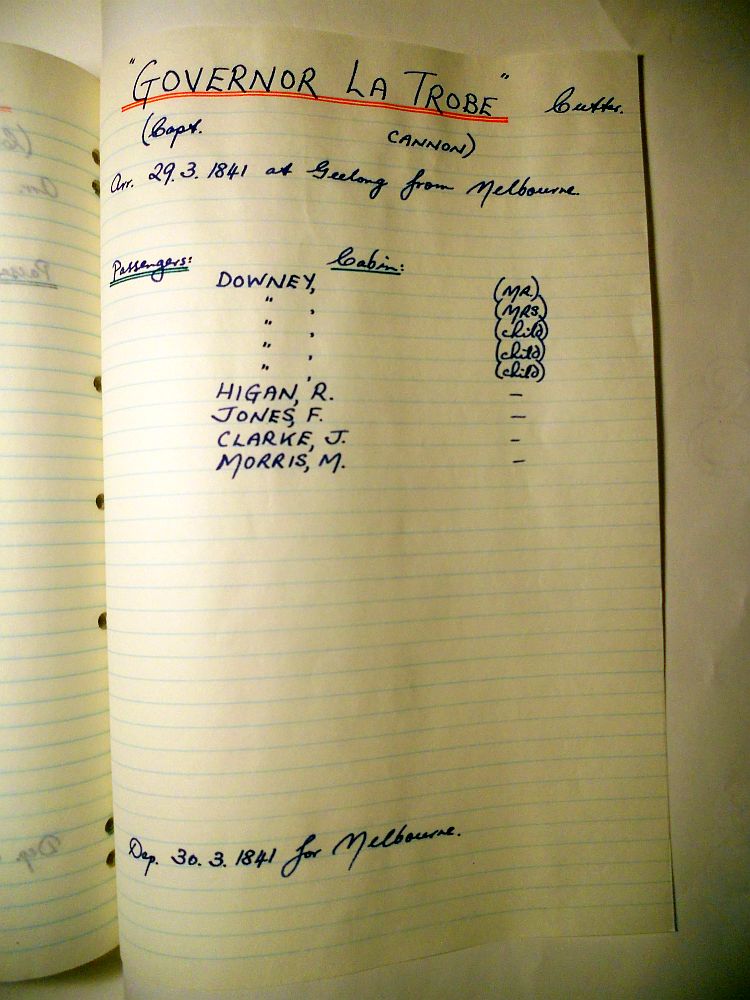 "GOVERNOR LA TROBE" Cutter.
(Capt. CANNON)
Arr. 29.3.1841 at Geelong from Melbourne.
Passengers: Cabin:
DOWNEY, (MR.)
" , (MRS.)
" , (child)
" , (child)
" , (child)
HIGAN, R. –
JONES, F. –
CLARKE, J. –
MORRIS, M. –
Dep. 30.3.1841 for Melbourne.